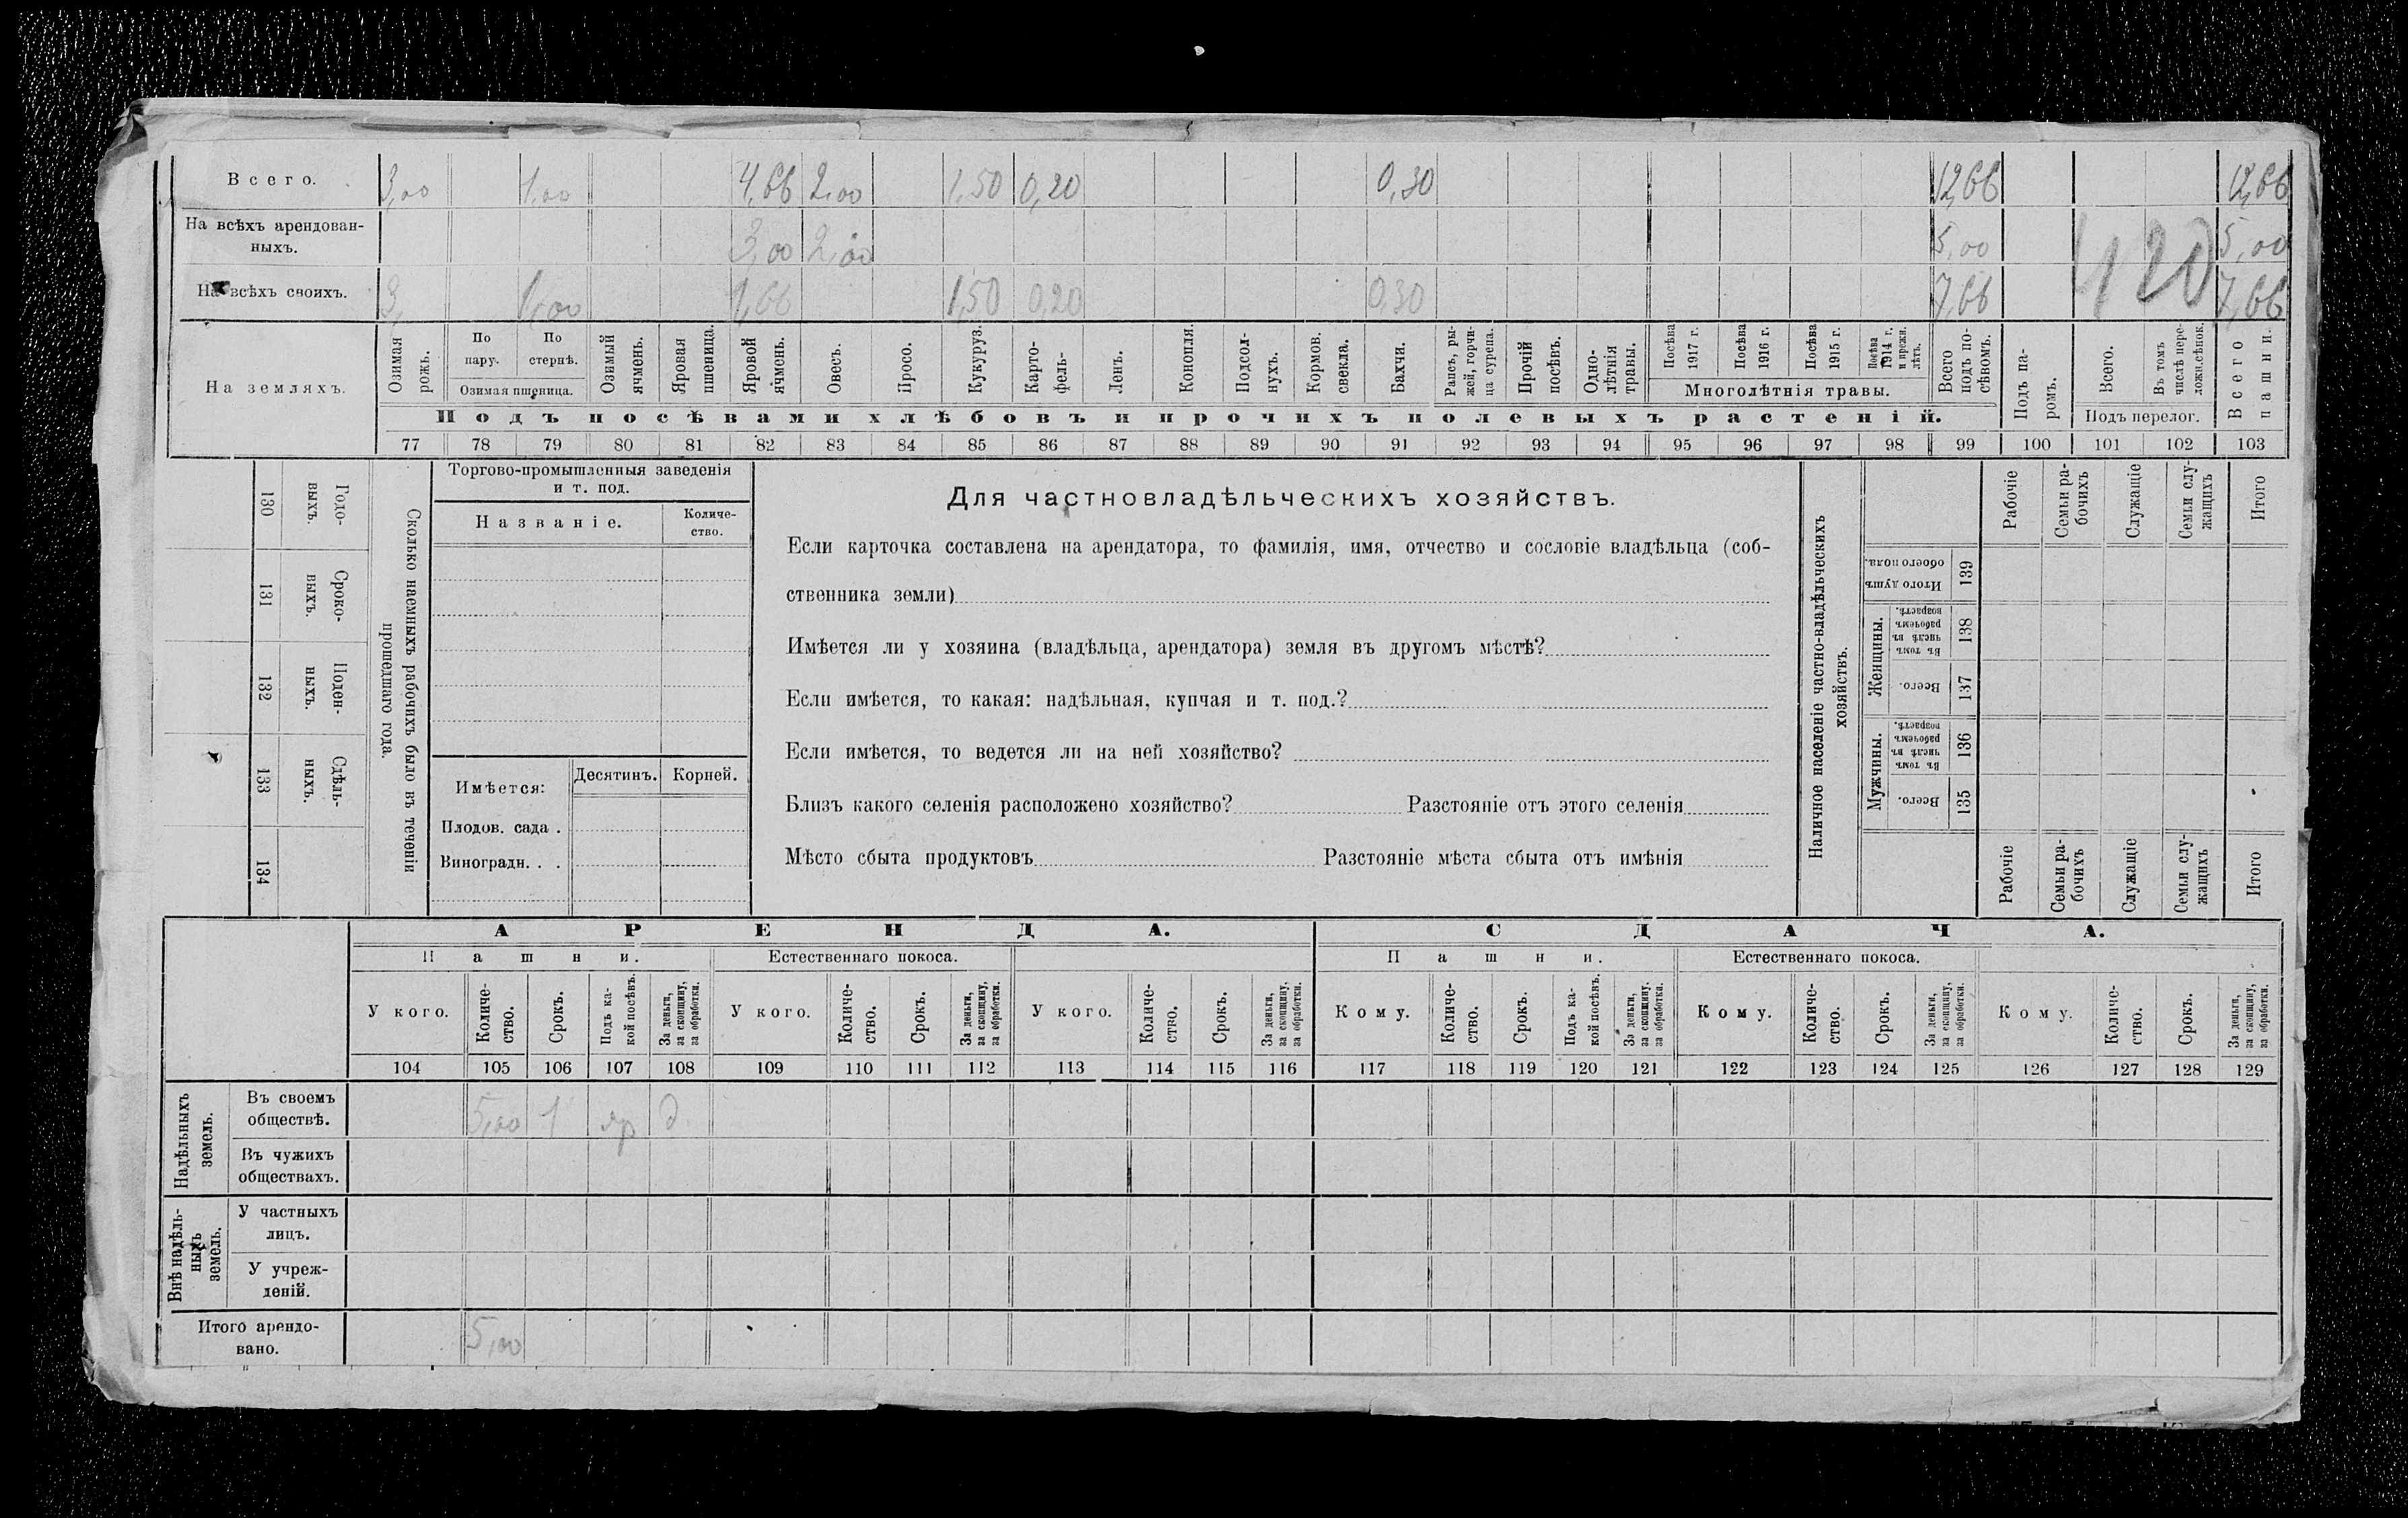 Всего. 3,00 1,00 4,66 2,00 1,50 0,20 0,30 12,66 12,66
На всѣхъ арендован-
ныхъ. 3,00 2,00 5,00 5,00
420
На всѣхъ своихъ. 3, 1,00 1,66 1,50 0,20 0,30 7,66 7,66
На земляхъ.
Озимая
рожь.
По
пару.
По
стернѣ.
Озимая пшеница.
Озимый
ячмень.
Яровая
пшеница.
Яровой
ячмень.
Овесъ.
Просо.
Кукуруз.
Карто-
фель-
Ленъ.
Конопля.
Подсол-
нухъ.
Кормов.
свекла.
Бахчи.
Рапсъ, ры-
жей, горчи-
ца сурепа.
Прочій
посѣвъ.
Одно-
лѣтнія
травы.
Посѣва
1917 г.
Посѣва
1916 г.
Посѣва
1915 г.
Посѣва
1914 г.
и прежн.
лѣтъ.
Многолѣтнія травы.
Всего
подъ по-
сѣвомъ.
Подъ посѣвами хлѣбовъ и прочихъ полевыхъ растеній.
Подъ па-
ромъ.
Всего.
Въ томъ
числѣ пере-
ложн.сѣнок.
Подъ перелог.
Всего
пашни.
77 78 79 80 81 82 83 84 85 86 87 88 89 90 91 92 93 94 95 96 97 98 99 100 101 102 103
130
Годо-
выхъ.
131
Сроко-
выхъ.
132
Поден-
ныхъ.
133
Сдѣль-
ныхъ.
134
Сколько наемныхъ рабочихъ было въ теченіи
прошедшаго года.
Торгово-промышленныя заведенія
и т. под.
Названіе.
Количе-
ство.
Имѣется:
Десятинъ. Корней.
Плодов. сада .
Виноградн. . .
Для частновладѣльческихъ хозяйствъ.
Если карточка составлена на арендатора, то фамилія, имя, отчество и сословіе владѣльца (соб-
ственника земли)
Имѣется ли у хозяина (владѣльца, арендатора) земля въ другомъ мѣстѣ?
Если имѣется, то какая: надѣльная, купчая и т. под.?
Если имѣется, то ведется ли на ней хозяйство?
Близъ какого селенія расположено хозяйство? Разстояніе отъ этого селенія
Мѣсто сбыта продуктовъ Разстояніе мѣста сбыта отъ имѣнія
Наличное населеніе частно-владѣльческихъ
хозяйствъ.
Рабочіе
Семьи ра-
бочихъ
Служащіе
Семьи слу-
жащихъ
Итого
Итого душъ
обоего пола.
139
Женщины.
Въ томъ
числѣ въ
рабочемъ
возрастѣ.
138
Всего.
137
Мужчины.
Въ томъ
числѣ въ
рабочемъ
возрастѣ.
136
Всего.
135
Рабочіе
Семьи ра-
бочихъ
Служащіе
Семьи слу-
жащихъ
Итого
АРЕНДА. СДАЧА.
Пашни. Естественнаго покоса. Пашни. Естественнаго покоса.
У кого.
Количе-
ство.
Срокъ.
Подъ ка-
кой посѣвъ.
За деньги,
за скопщину,
за обработки.
У кого.
Количе-
ство.
Срокъ.
За деньги,
за скопщину,
за обработки.
У кого.
Количе-
ство.
Срокъ.
За деньги,
за скопщину,
за обработки.
Кому.
Количе-
ство.
Срокъ.
Подъ ка-
кой посѣвъ.
За деньги,
за скопщину,
за обработки.
Кому.
Количе-
ство.
Срокъ.
За деньги,
за скопщину,
за обработки.
Кому.
Количе-
ство.
Срокъ.
За деньги,
за скопщину,
за обработки.
104 105 106 107 108 109 110 111 112 113 114 115 116 117 118 119 120 121 122 123 124 125 126 127 128 129
Надѣльныхъ
земель.
Въ своемъ
обществѣ. 5,00 1 яр д
Въ чужихъ
обществахъ.
Внѣ надѣль-
ныхъ
земель.
У частныхъ
лицъ.
У учреж-
деній.
Итого арендо-
вано. 5,00